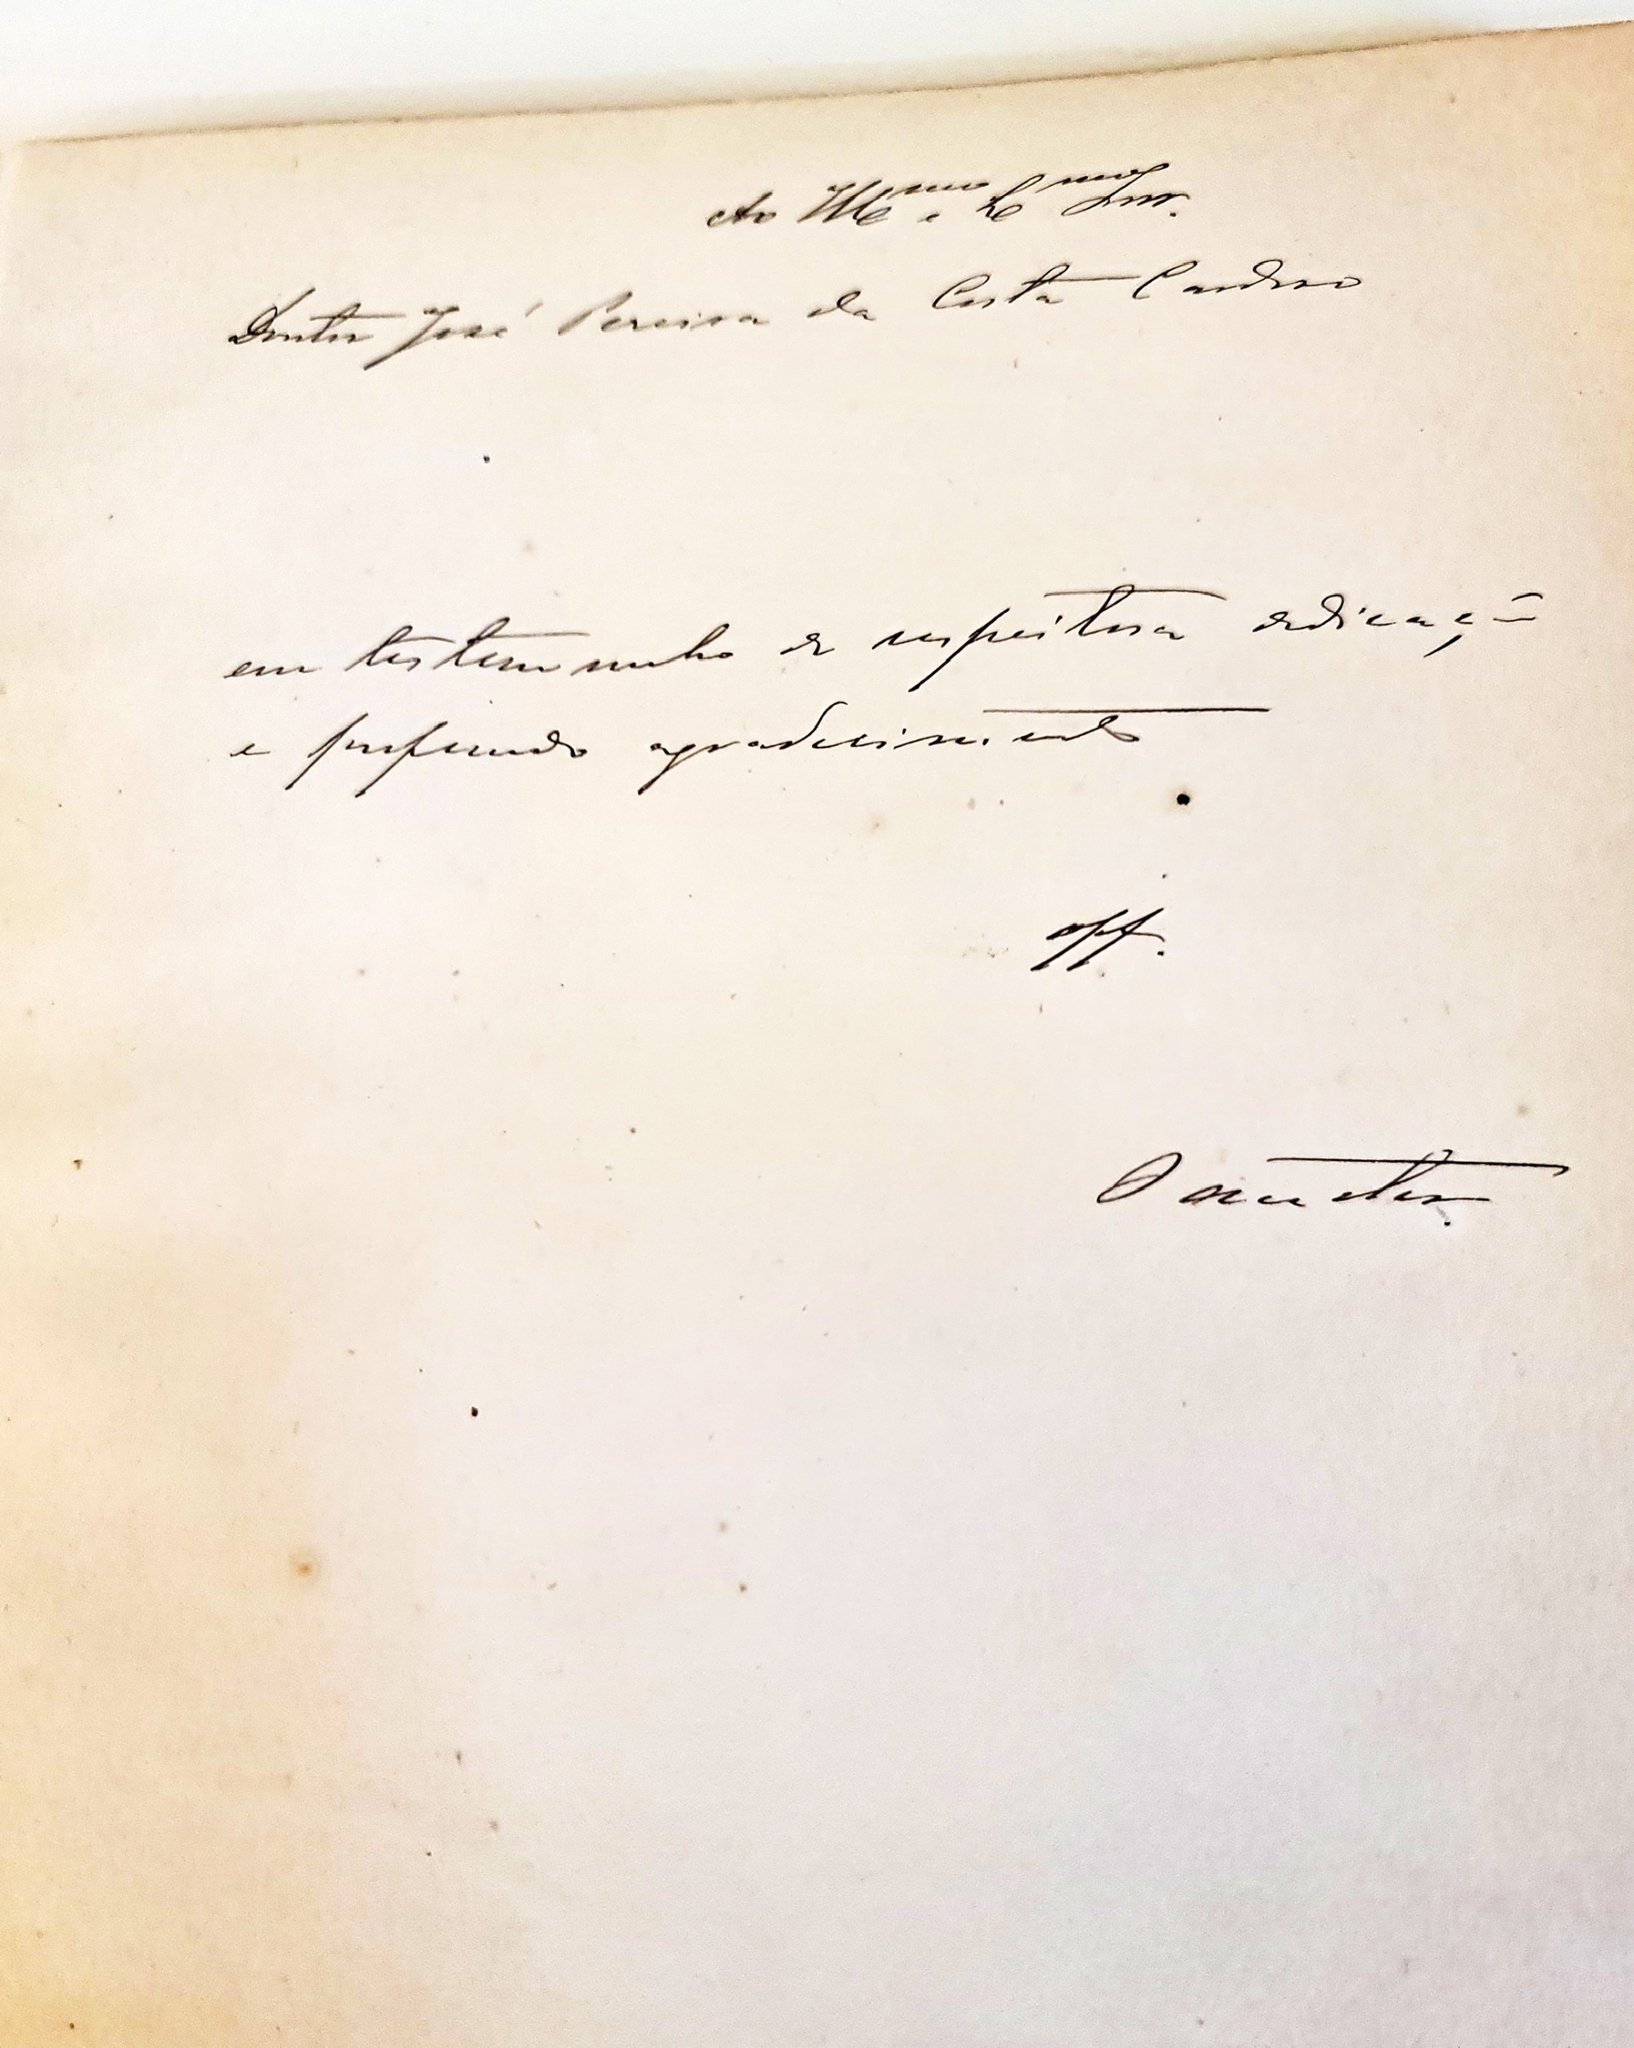 Ao Illmo e Exmo Snr.
Doutor José Pereira da Costa Cardoso
em testemunho de respeitosa dedicação
e profundo agradecimento
off.
O auctor.